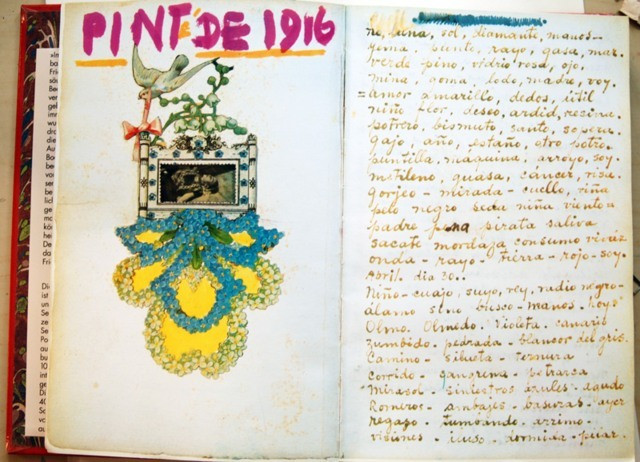 PINTÉ DE 1916
luna, sol, diamante, manos-
yema, puente, rayo, gasa, mar.
verde pino, vidrio rosa, ojo,
mina, goma, lodo, madre, voy.
=amor amarillo, dedos, útil
niño flor, deseo, ardid, resina.
potrero, bismuto, santo, sopera.
gajo, año, estaño, otro potro.
puntilla, maquina, arroyo, soy.
metileno, guasa, cáncer, risa.
gorjeo - mirada - cuello, viña
pelo negro seda niña viento =
padre pena pirata saliva
sacate mordaza consumo vivaz
onda - rayo - tierra - rojo - soy.
Abril. dia 30.
Niño - cuajo, suyo, rey, radio negro -
álamo sino busco - manos. hoy
Olmo. Olmedo. Violeta. canario
zumbido. pedrada - blancor del gris.
Camino - silueta - ternura
corrido - gangrena - petrarca
Mirasol - siniestros azules. agudo
Romeros - ambajes - basuras - ayer
regazo - tumbando. arrimo -
visiones - iluso. dormida - pilar.